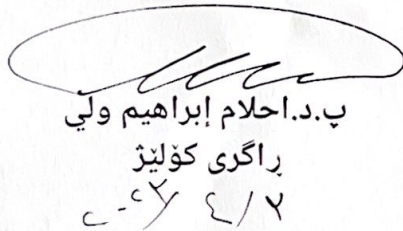 پ.د.احلام إبراهيم ولي
ڕاگری کۆلێژ
٤/٢